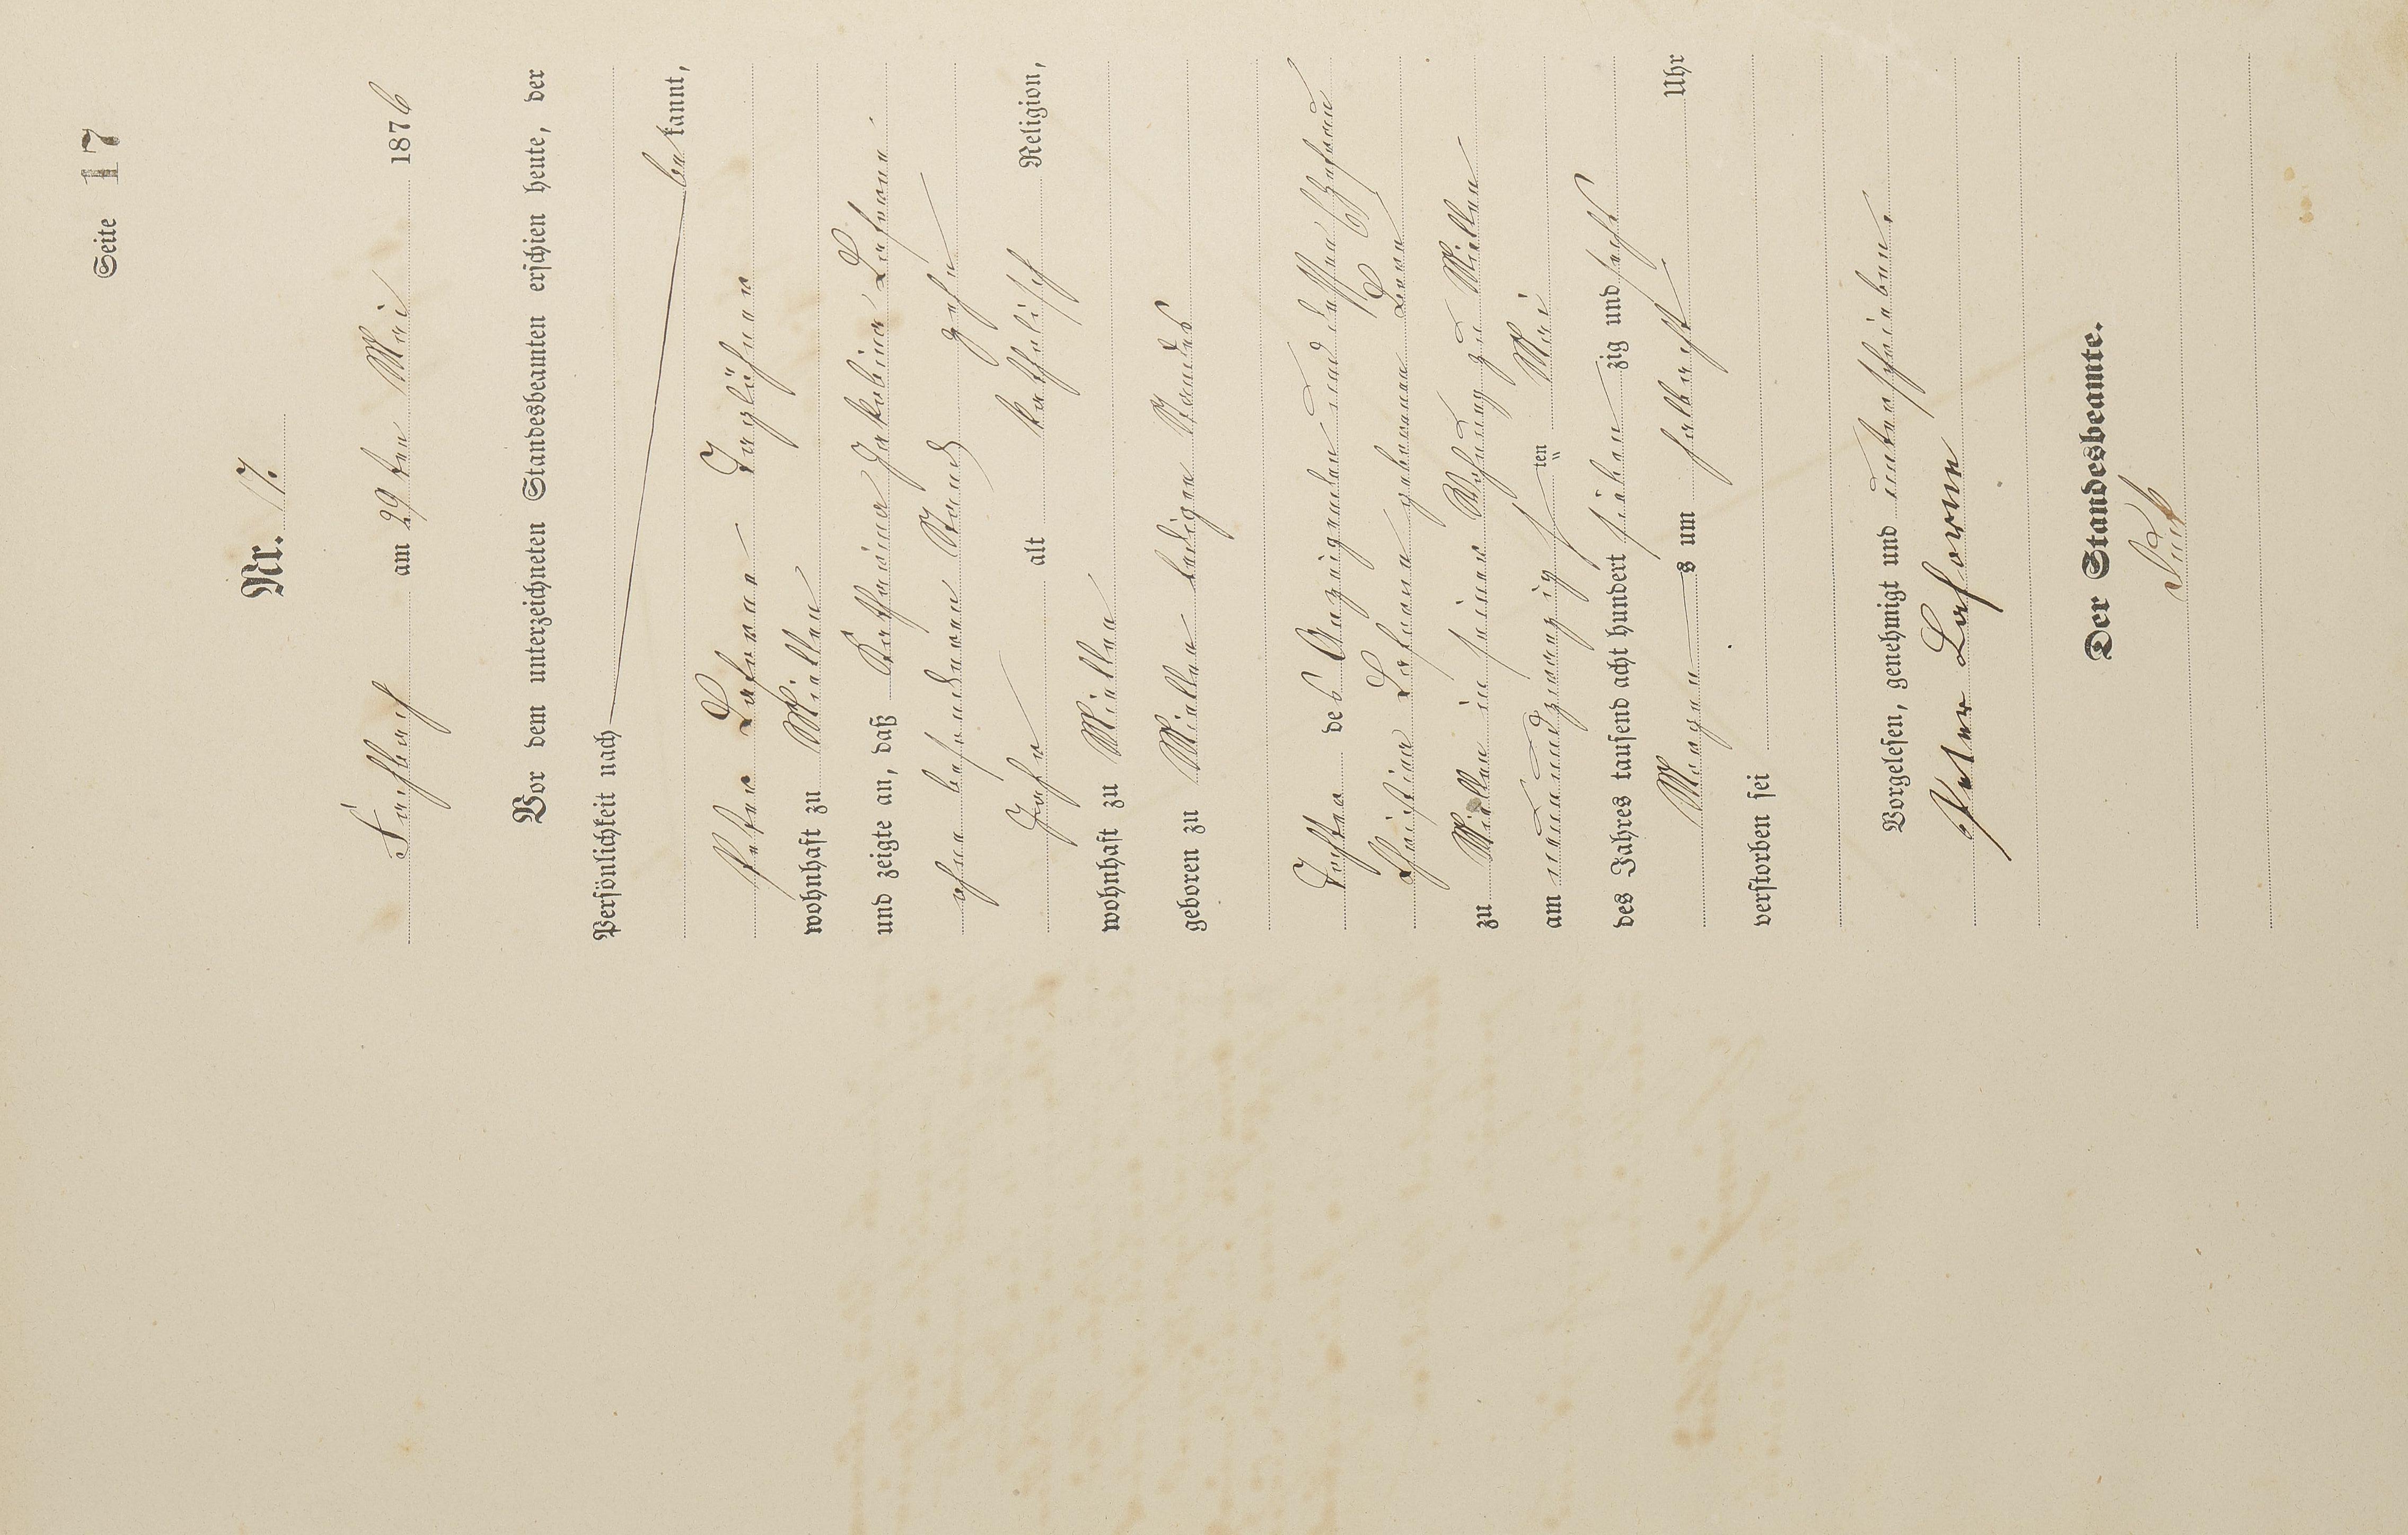 Seite 17
Nr. 17.
Fachbach am 29ten Mai 1876
Vor dem unterzeichneten Standesbeamten erschien heute, der
Persönlichkeit nach
bekannt,
Peter Laforme Taglöhner
wohnhaft zu Miellen
und zeigte an, daß Katharina Jakobina Laforme
ohne besonderen Stand, zehn
Jahre alt katholisch Religion,
wohnhaft zu Miellen
geboren zu Miellen ledigen Standes
Tochter des Anzeigenden und dessen Ehefrau
Christina Laforme geborenen
zu Miellen in seiner Wohnung zu Miellen
am neunundzwanzigsten Mai
des Jahres tausend acht hundert siebenzig und sechs
Morgens um halbacht Uhr
verstorben sei
Vorgelesen, genehmigt und unterschrieben.
Peter Laforme
Der Standesbeamte.